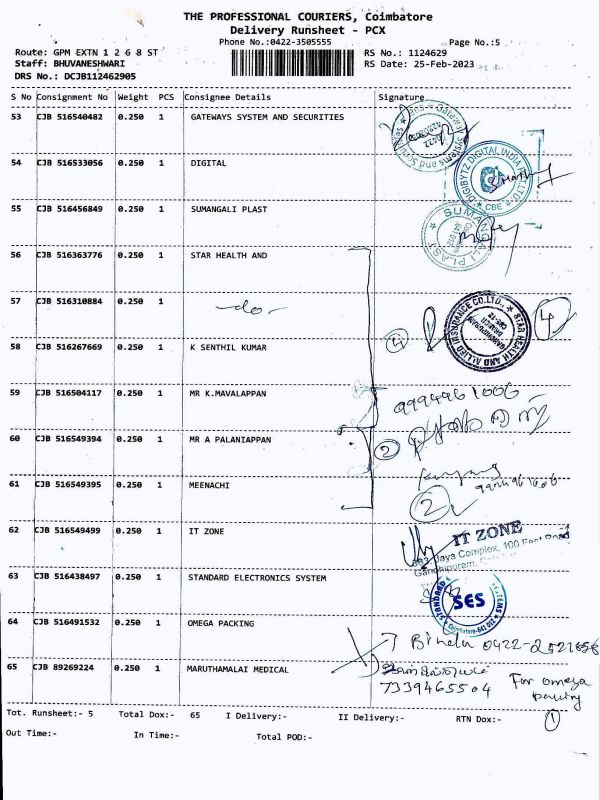 THE PROFESSIONAL COURIERS, Coimbatore
Delivery Runsheet - PCX
Phone No.:0422-3505555 Page No.:5
Route: GPM EXTN 1 2 6 8 ST RS No.: 1124629
Staff: BHUVANESHWARI RS Date: 25-Feb-2023
DRS No.: DCJB112462905
S No Consignment No Weight PCS Consignee Details Signature
53 CJB 516540482 0.250 1 GATEWAYS SYSTEM AND SECURITIES
54 CJB 516533056 0.250 1 DIGITAL
DIGIBYTZ DIGITAL INDIA PVT.LTD. CBE
55 CJB 516456849 0.250 1 SUMANGALI PLAST
SUMANGALI PLAST
56 CJB 516363776 0.250 1 STAR HEALTH AND
57 CJB 516310884 0.250 1 -do-
STAR HEALTH AND ALLIED INSURANCE CO.LTD.,
4
58 CJB 516267669 0.250 1 K SENTHIL KUMAR
4
59 CJB 516504117 0.250 1 MR K.MAVALAPPAN
9994961006
60 CJB 516549394 0.250 1 MR A PALANIAPPAN
2
61 CJB 516549395 0.250 1 MEENACHI
2
62 CJB 516549499 0.250 1 IT ZONE
IT ZONE
Jaya Complex, 100 Feet Road
Gandhipuram,
63 CJB 516438497 0.250 1 STANDARD ELECTRONICS SYSTEM
STANDARD SYSTEMS
SES
Coimbatore-641 012
64 CJB 516491532 0.250 1 OMEGA PACKING
65 CJB 89269224 0.250 1 MARUTHAMALAI MEDICAL
7339465504
For omega
packing
1
Tot. Runsheet:- 5 Total Dox:- 65 I Delivery:- II Delivery:- RTN Dox:-
Out Time:- In Time:- Total POD:-